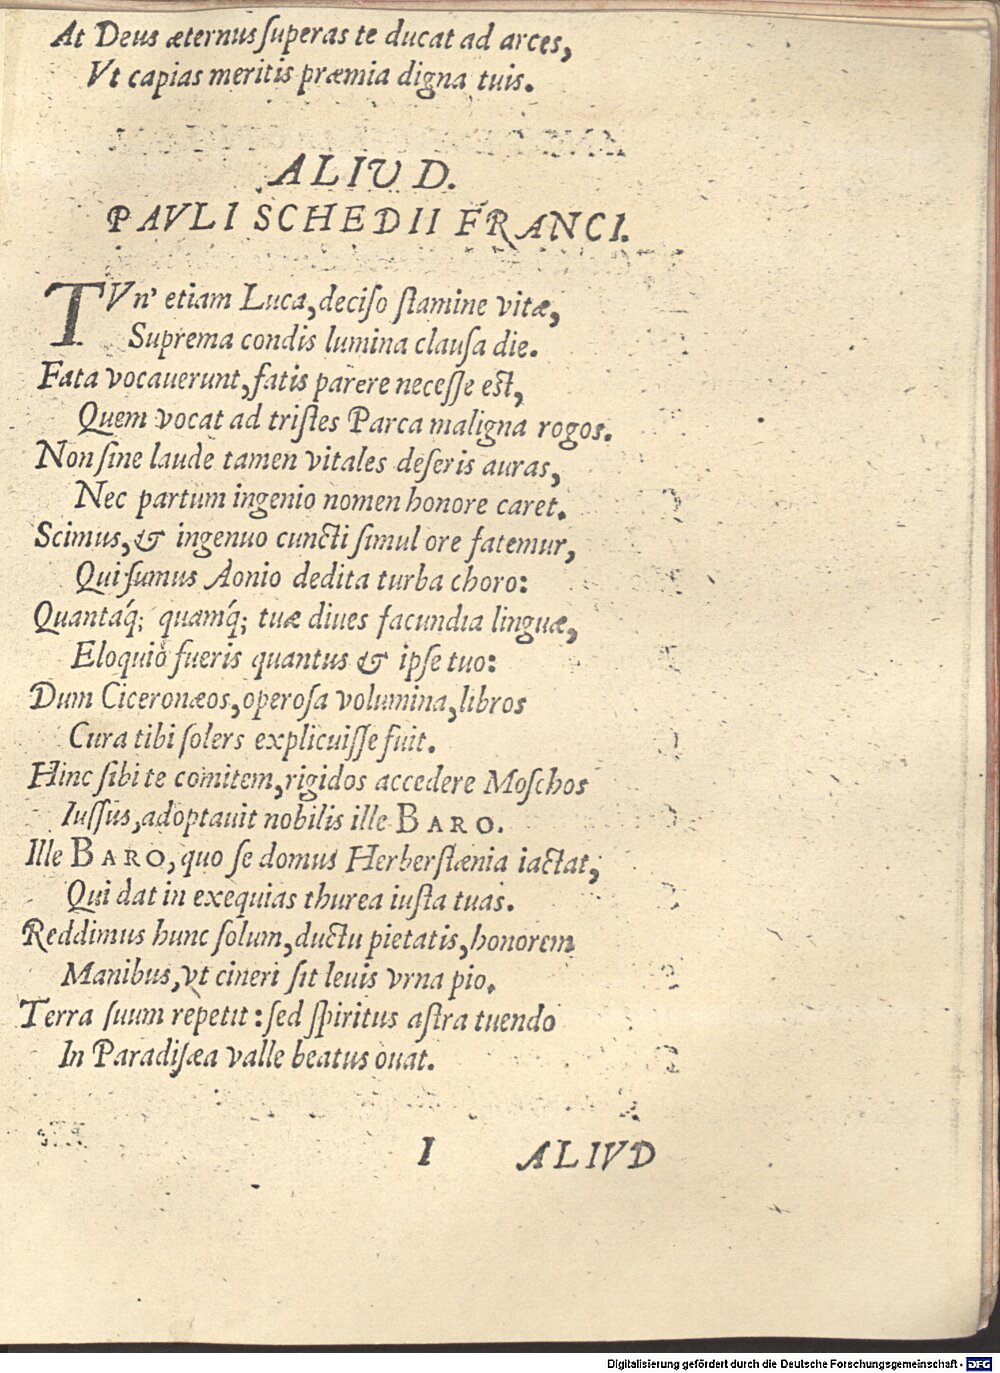 At Deus æternus ſuperas te ducat ad arces,
Vt capias meritis præmia digna tuis.
ALIUD.
PAVLI SCHEDII FRANCI.
TVn' etiam Luca, deciſo ſtamine vitæ,
Suprema condis lumina clauſa die.
Fata vocauerunt, fatis parere neceſſe eſt,
Quem vocat ad triſtes Parca maligna rogos.
Non ſine laude tamen vitales deſeris auras,
Nec partum ingenio nomen honore caret.
Scimus, & ingenuo cuncti ſimul ore fatemur,
Qui ſumus Aonio dedita turba choro:
Quantáq; quamq́; tuæ diues facundia linguæ,
Eloquiò fueris quantus & ipſe tuo:
Dum Ciceronæos, operoſa volumina, libros
Cura tibi ſolers explicuiſſe fuit.
Hinc ſibi te comitem, rigidos accedere Moſchos
Iuſſus, adoptauit nobilis ille BARO.
Ille BARO, quo ſe domus Herberſtænia iactat,
Qui dat in exequias thurea iuſta tuas.
Reddimus hunc ſolum, ductu pietatis, honorem
Manibus, vt cineri ſit leuis vrna pio.
Terra ſuum repetit: ſed ſpiritus aſtra tuendo
In Paradiſæa valle beatus ouat.
I ALIVD
Digitalisierung gefördert durch die Deutsche Forschungsgemeinschaft - DFG